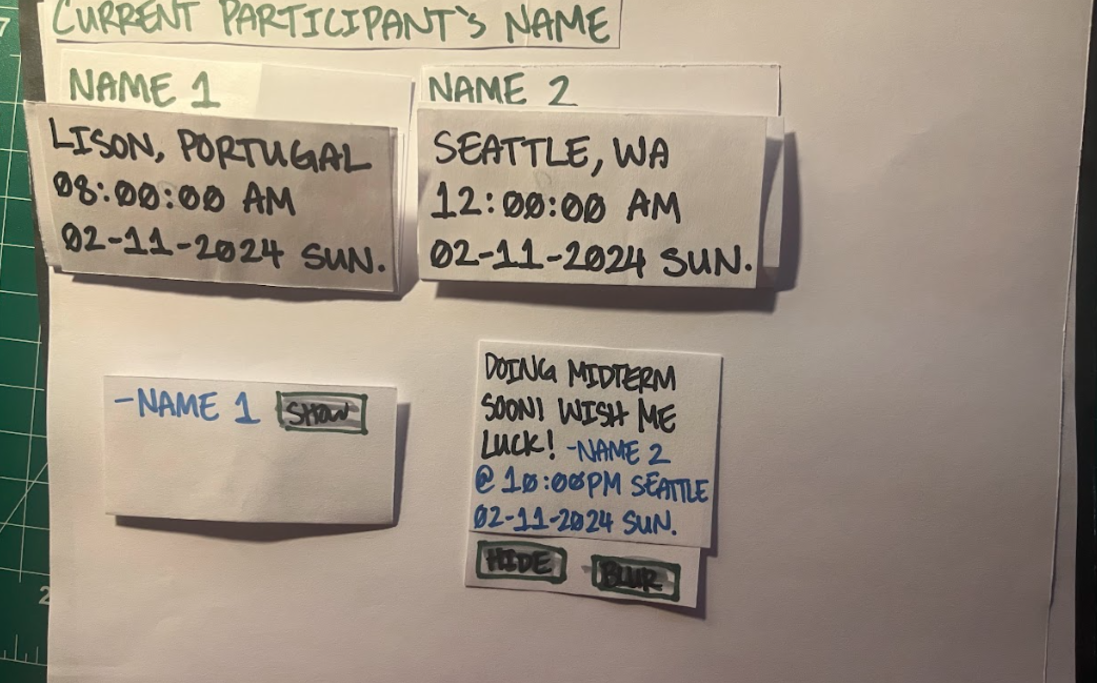 CURRENT PARTICIPANT'S NAME
NAME 1
NAME 2
LISON, PORTUGAL
08:00:00 AM
02-11-2024 SUN.
SEATTLE, WA
12:00:00 AM
02-11-2024 SUN.
-NAME 1 SHOW
DOING MIDTERM
SOON! WISH ME
LUCK! -NAME 2
@ 10:00PM SEATTLE
02-11-2024 SUN.
HIDE BLUR
7
2